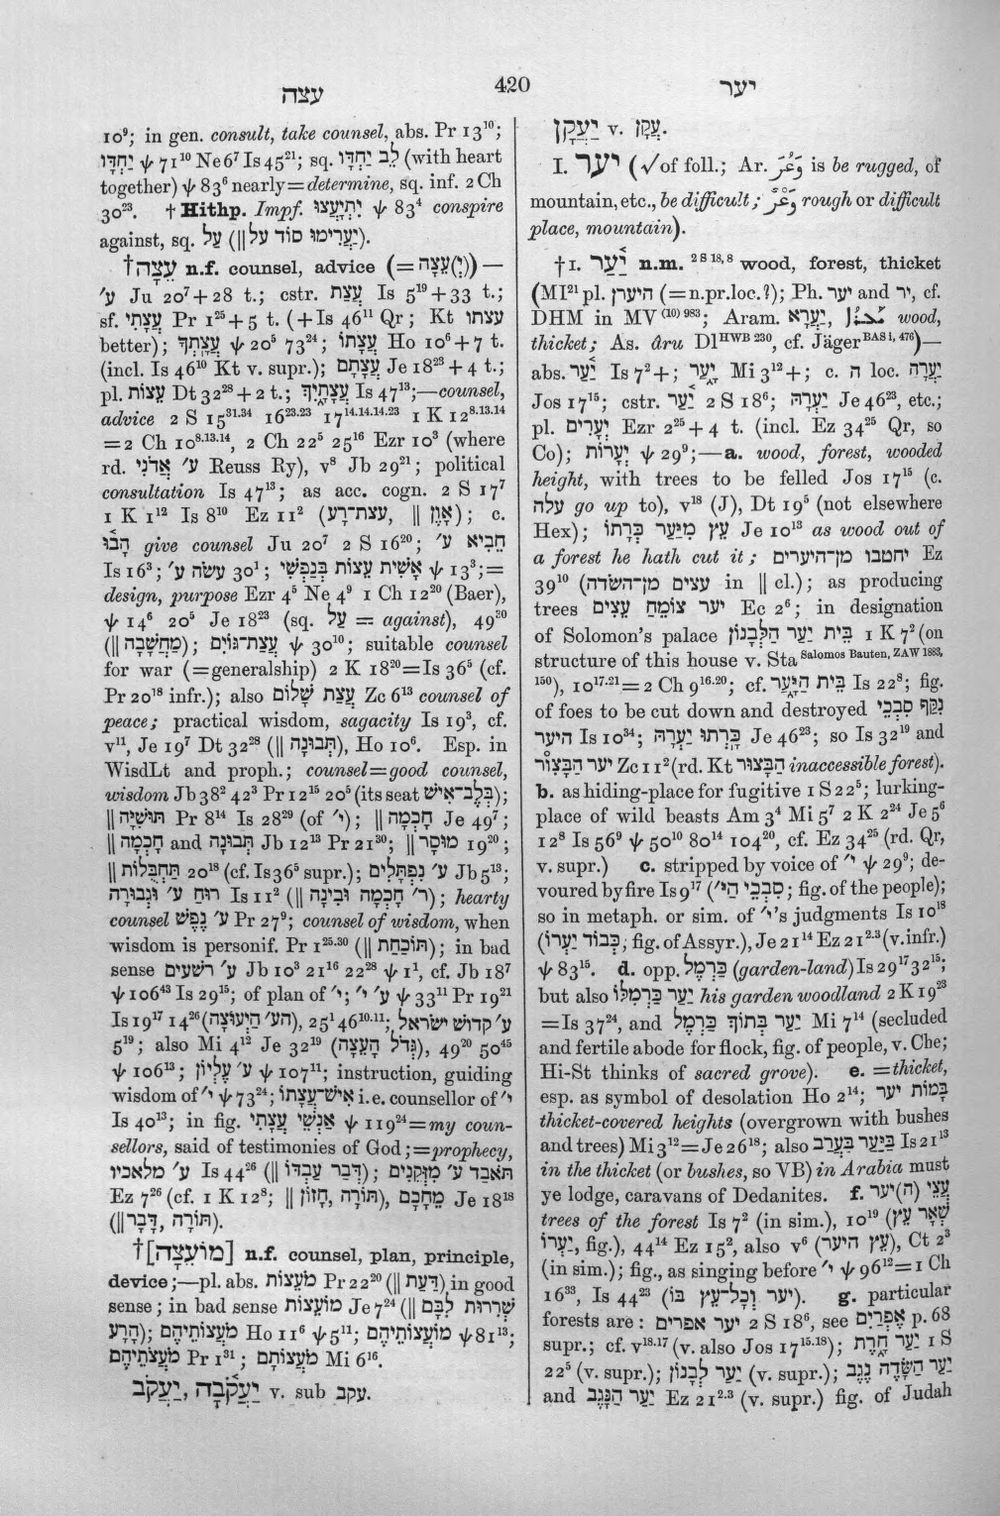 עצה
420
יער
10⁹; in gen. consult, take counsel, abs. Pr 13¹⁰;
יַחְדָּו ψ 71¹⁰ Ne 6⁷ Is 45²¹; sq. לֵב יַחְדָּו (with heart
together) ψ 83⁶ nearly = determine, sq. inf. 2 Ch
30²³. † Hithp. Impf. יִתְיָעֲצוּ ψ 83⁴ conspire
against, sq. עַל (‖ יַעֲרִימוּ סוֹד על).
† עֵצָה n.f. counsel, advice (= (יְ)עֵצָה) —
ע׳ Ju 20⁷ + 28 t.; cstr. עֲצַת Is 5¹⁹ + 33 t.;
sf. עֲצָתִי Pr 1²⁵ + 5 t. (+ Is 46¹¹ Qr; Kt עצתו
better); עֲצָתֶךָ ψ 20⁵ 73²⁴; עֲצָתוֹ Ho 10⁶ + 7 t.
(incl. Is 46¹⁰ Kt v. supr.); עֲצָתָם Je 18²³ + 4 t.;
pl. עֵצוֹת Dt 32²⁸ + 2 t.; עֲצָתָיִךְ Is 47¹³;—counsel,
advice 2 S 15³¹·³⁴ 16²³·²³ 17¹⁴·¹⁴·¹⁴·²³ 1 K 12⁸·¹³·¹⁴
= 2 Ch 10⁸·¹³·¹⁴, 2 Ch 22⁵ 25¹⁶ Ezr 10³ (where
rd. ע׳ אֲדֹנִי Reuss Ry), v⁸ Jb 29²¹; political
consultation Is 47¹³; as acc. cogn. 2 S 17⁷
1 K 1¹² Is 8¹⁰ Ez 11² (עצת־רָע, ‖ אָוֶן); c.
הָבוּ give counsel Ju 20⁷ 2 S 16²⁰; הֵבִיא ע׳
Is 16³; עשׂה ע׳ 30¹; אָשִׁית עֵצוֹת בְּנַפְשִׁי ψ 13³; =
design, purpose Ezr 4⁵ Ne 4⁹ 1 Ch 12²⁰ (Baer),
ψ 14⁶ 20⁵ Je 18²³ (sq. עַל = against), 49²⁰
(‖ מַחֲשָׁבָה); עֲצַת־גּוֹיִם ψ 30¹⁰; suitable counsel
for war (= generalship) 2 K 18²⁰ = Is 36⁵ (cf.
Pr 20¹⁸ infr.); also עֲצַת שָׁלוֹם Zc 6¹³ counsel of
peace; practical wisdom, sagacity Is 19³, cf.
v¹¹, Je 19⁷ Dt 32²⁸ (‖ תְּבוּנָה), Ho 10⁶. Esp. in
WisdLt and proph.; counsel = good counsel,
wisdom Jb 38² 42³ Pr 12¹⁵ 20⁵ (its seat בְּלֶב־אִישׁ);
‖ תּוּשִׁיָּה Pr 8¹⁴ Is 28²⁹ (of י׳); ‖ חָכְמָה Je 49⁷;
‖ חָכְמָה and תְּבוּנָה Jb 12¹³ Pr 21³⁰; ‖ מוּסָר 19²⁰;
‖ תַּחְבֻּלוֹת 20¹⁸ (cf. Is 36⁵ supr.); ע׳ נִפְתָּלִים Jb 5¹³;
רוּחַ ע׳ וּגְבוּרָה Is 11² (‖ ר׳ חָכְמָה וּבִינָה); hearty
counsel ע׳ נֶפֶשׁ Pr 27⁹; counsel of wisdom, when
wisdom is personif. Pr 1²⁵·³⁰ (‖ תּוֹכַחַת); in bad
sense ע׳ רשׁעים Jb 10³ 21¹⁶ 22²⁸ ψ 1¹, cf. Jb 18⁷
ψ 106⁴³ Is 29¹⁵; of plan of י׳; ע׳ י׳ ψ 33¹¹ Pr 19²¹
Is 19¹⁷ 14²⁶ (הע׳ הַיְעוּצָה), 25¹ 46¹⁰·¹¹; ע׳ קדושׁ ישׂראל
5¹⁹; also Mi 4¹² Je 32¹⁹ (גְּדֹל הָעֵצָה), 49²⁰ 50⁴⁵
ψ 106¹³; ע׳ עֶלְיוֹן ψ 107¹¹; instruction, guiding
wisdom of י׳ ψ 73²⁴; אִישׁ־עֲצָתוֹ i.e. counsellor of י׳
Is 40¹³; in fig. אַנְשֵׁי עֲצָתִי ψ 119²⁴ = my coun-
sellors, said of testimonies of God; = prophecy,
ע׳ מלאכיו Is 44²⁶ (‖ דְּבַר עַבְדּוֹ); תֹּאבַד ע׳ מִזְּקֵנִים
Ez 7²⁶ (cf. 1 K 12⁸; ‖ תּוֹרָה, חָזוֹן), מֵחָכָם Je 18¹⁸
(‖ תּוֹרָה, דָּבָר).
† [מוֹעֵצָה] n.f. counsel, plan, principle,
device;—pl. abs. מֹעֵצוֹת Pr 22²⁰ (‖ דַּעַת) in good
sense; in bad sense מוֹעֵצוֹת Je 7²⁴ (‖ שְׁרִרוּת לִבָּם
הָרָע); מֹעֲצוֹתֵיהֶם Ho 11⁶ ψ 5¹¹; מוֹעֲצוֹתֵיהֶם ψ 81¹³;
מֹעֲצֹתֵיהֶם Pr 1³¹; מֹעֲצוֹתָם Mi 6¹⁶.
יַעֲקֹב, יַעֲקֹבָה v. sub עקב.
יַעֲקָן v. עֲקָן.
I. יער (√ of foll.; Ar. وَعُرَ is be rugged, of
mountain, etc., be difficult; وَعْرٌ rough or difficult
place, mountain).
† I. יַעַר n.m. ²ˢ ¹⁸,⁸ wood, forest, thicket
(MI²¹ pl. היערן (= n.pr.loc.?); Ph. יער and יר, cf.
DHM in MV ⁽¹⁰⁾ ⁹⁸³; Aram. יַעֲרָא, wood,
thicket; As. âru Dl ᴴᵂᴮ ²³⁰, cf. Jäger ᴮᴬˢ ¹, ⁴⁷⁶)—
abs. יַעַר Is 7² +; יָ֑עַר Mi 3¹² +; c. ה loc. יַעְרָה
Jos 17¹⁵; cstr. יַעַר 2 S 18⁶; יַעְרָהּ Je 46²³, etc.;
pl. יְעָרִים Ezr 2²⁵ + 4 t. (incl. Ez 34²⁵ Qr, so
Co); יְעָרוֹת ψ 29⁹;—a. wood, forest, wooded
height, with trees to be felled Jos 17¹⁵ (c.
עלה go up to), v¹⁸ (J), Dt 19⁵ (not elsewhere
Hex); עֵץ מִיַּעַר כְּרָתוֹ Je 10¹³ as wood out of
a forest he hath cut it; יחטבו מן־היערים Ez
39¹⁰ (עצים מן־השׂדה in ‖ cl.); as producing
trees יער צוֹמֵחַ עֵצִים Ec 2⁶; in designation
of Solomon's palace בֵּית יַעַר הַלְּבָנוֹן 1 K 7² (on
structure of this house v. Sta Salomos Bauten, ZAW 1883,
150), 10¹⁷·²¹ = 2 Ch 9¹⁶·²⁰; cf. בֵּית הַיָּ֑עַר Is 22⁸; fig.
of foes to be cut down and destroyed נִקַּף סִבְכֵי
היער Is 10³⁴; כָּרְתוּ יַעְרָהּ Je 46²³; so Is 32¹⁹ and
יער הַבָּצוֹר Zc 11² (rd. Kt הַבָּצוּר inaccessible forest).
b. as hiding-place for fugitive 1 S 22⁵; lurking-
place of wild beasts Am 3⁴ Mi 5⁷ 2 K 2²⁴ Je 5⁶
12⁸ Is 56⁹ ψ 50¹⁰ 80¹⁴ 104²⁰, cf. Ez 34²⁵ (rd. Qr,
v. supr.) c. stripped by voice of י׳ ψ 29⁹; de-
voured by fire Is 9¹⁷ (סִבְכֵי הַי׳; fig. of the people);
so in metaph. or sim. of י׳'s judgments Is 10¹⁸
(כְּבוֹד יַעְרוֹ, fig. of Assyr.), Je 21¹⁴ Ez 21²·³ (v. infr.)
ψ 83¹⁵. d. opp. כַּרְמֶל (garden-land) Is 29¹⁷ 32¹⁵;
but also יַעַר כַּרְמִלּוֹ his garden woodland 2 K 19²³
= Is 37²⁴, and יַעַר בְּתוֹךְ כַּרְמֶל Mi 7¹⁴ (secluded
and fertile abode for flock, fig. of people, v. Che;
Hi-St thinks of sacred grove). e. = thicket,
esp. as symbol of desolation Ho 2¹⁴; בָּמוֹת יער
thicket-covered heights (overgrown with bushes
and trees) Mi 3¹² = Je 26¹⁸; also בַּיַּעַר בַּעְרַב Is 21¹³
in the thicket (or bushes, so VB) in Arabia must
ye lodge, caravans of Dedanites. f. עֲצֵי (ה)יער
trees of the forest Is 7² (in sim.), 10¹⁹ (שְׁאָר עֵץ
יַעְרוֹ, fig.), 44¹⁴ Ez 15², also v⁶ (עֵץ היער), Ct 2³
(in sim.); fig., as singing before י׳ ψ 96¹² = 1 Ch
16³³, Is 44²³ (יער וְכָל־עֵץ בּוֹ). g. particular
forests are: יער אפרים 2 S 18⁶, see אֶפְרַיִם p. 68
supr.; cf. v¹⁸·¹⁷ (v. also Jos 17¹⁵·¹⁸); יַעַר חָרֶת 1 S
22⁵ (v. supr.); יַעַר לְבָנוֹן (v. supr.); יַעַר הַשָּׂדֶה נֶגֶב
and יַעַר הַנֶּגֶב Ez 21²·³ (v. supr.) fig. of Judah